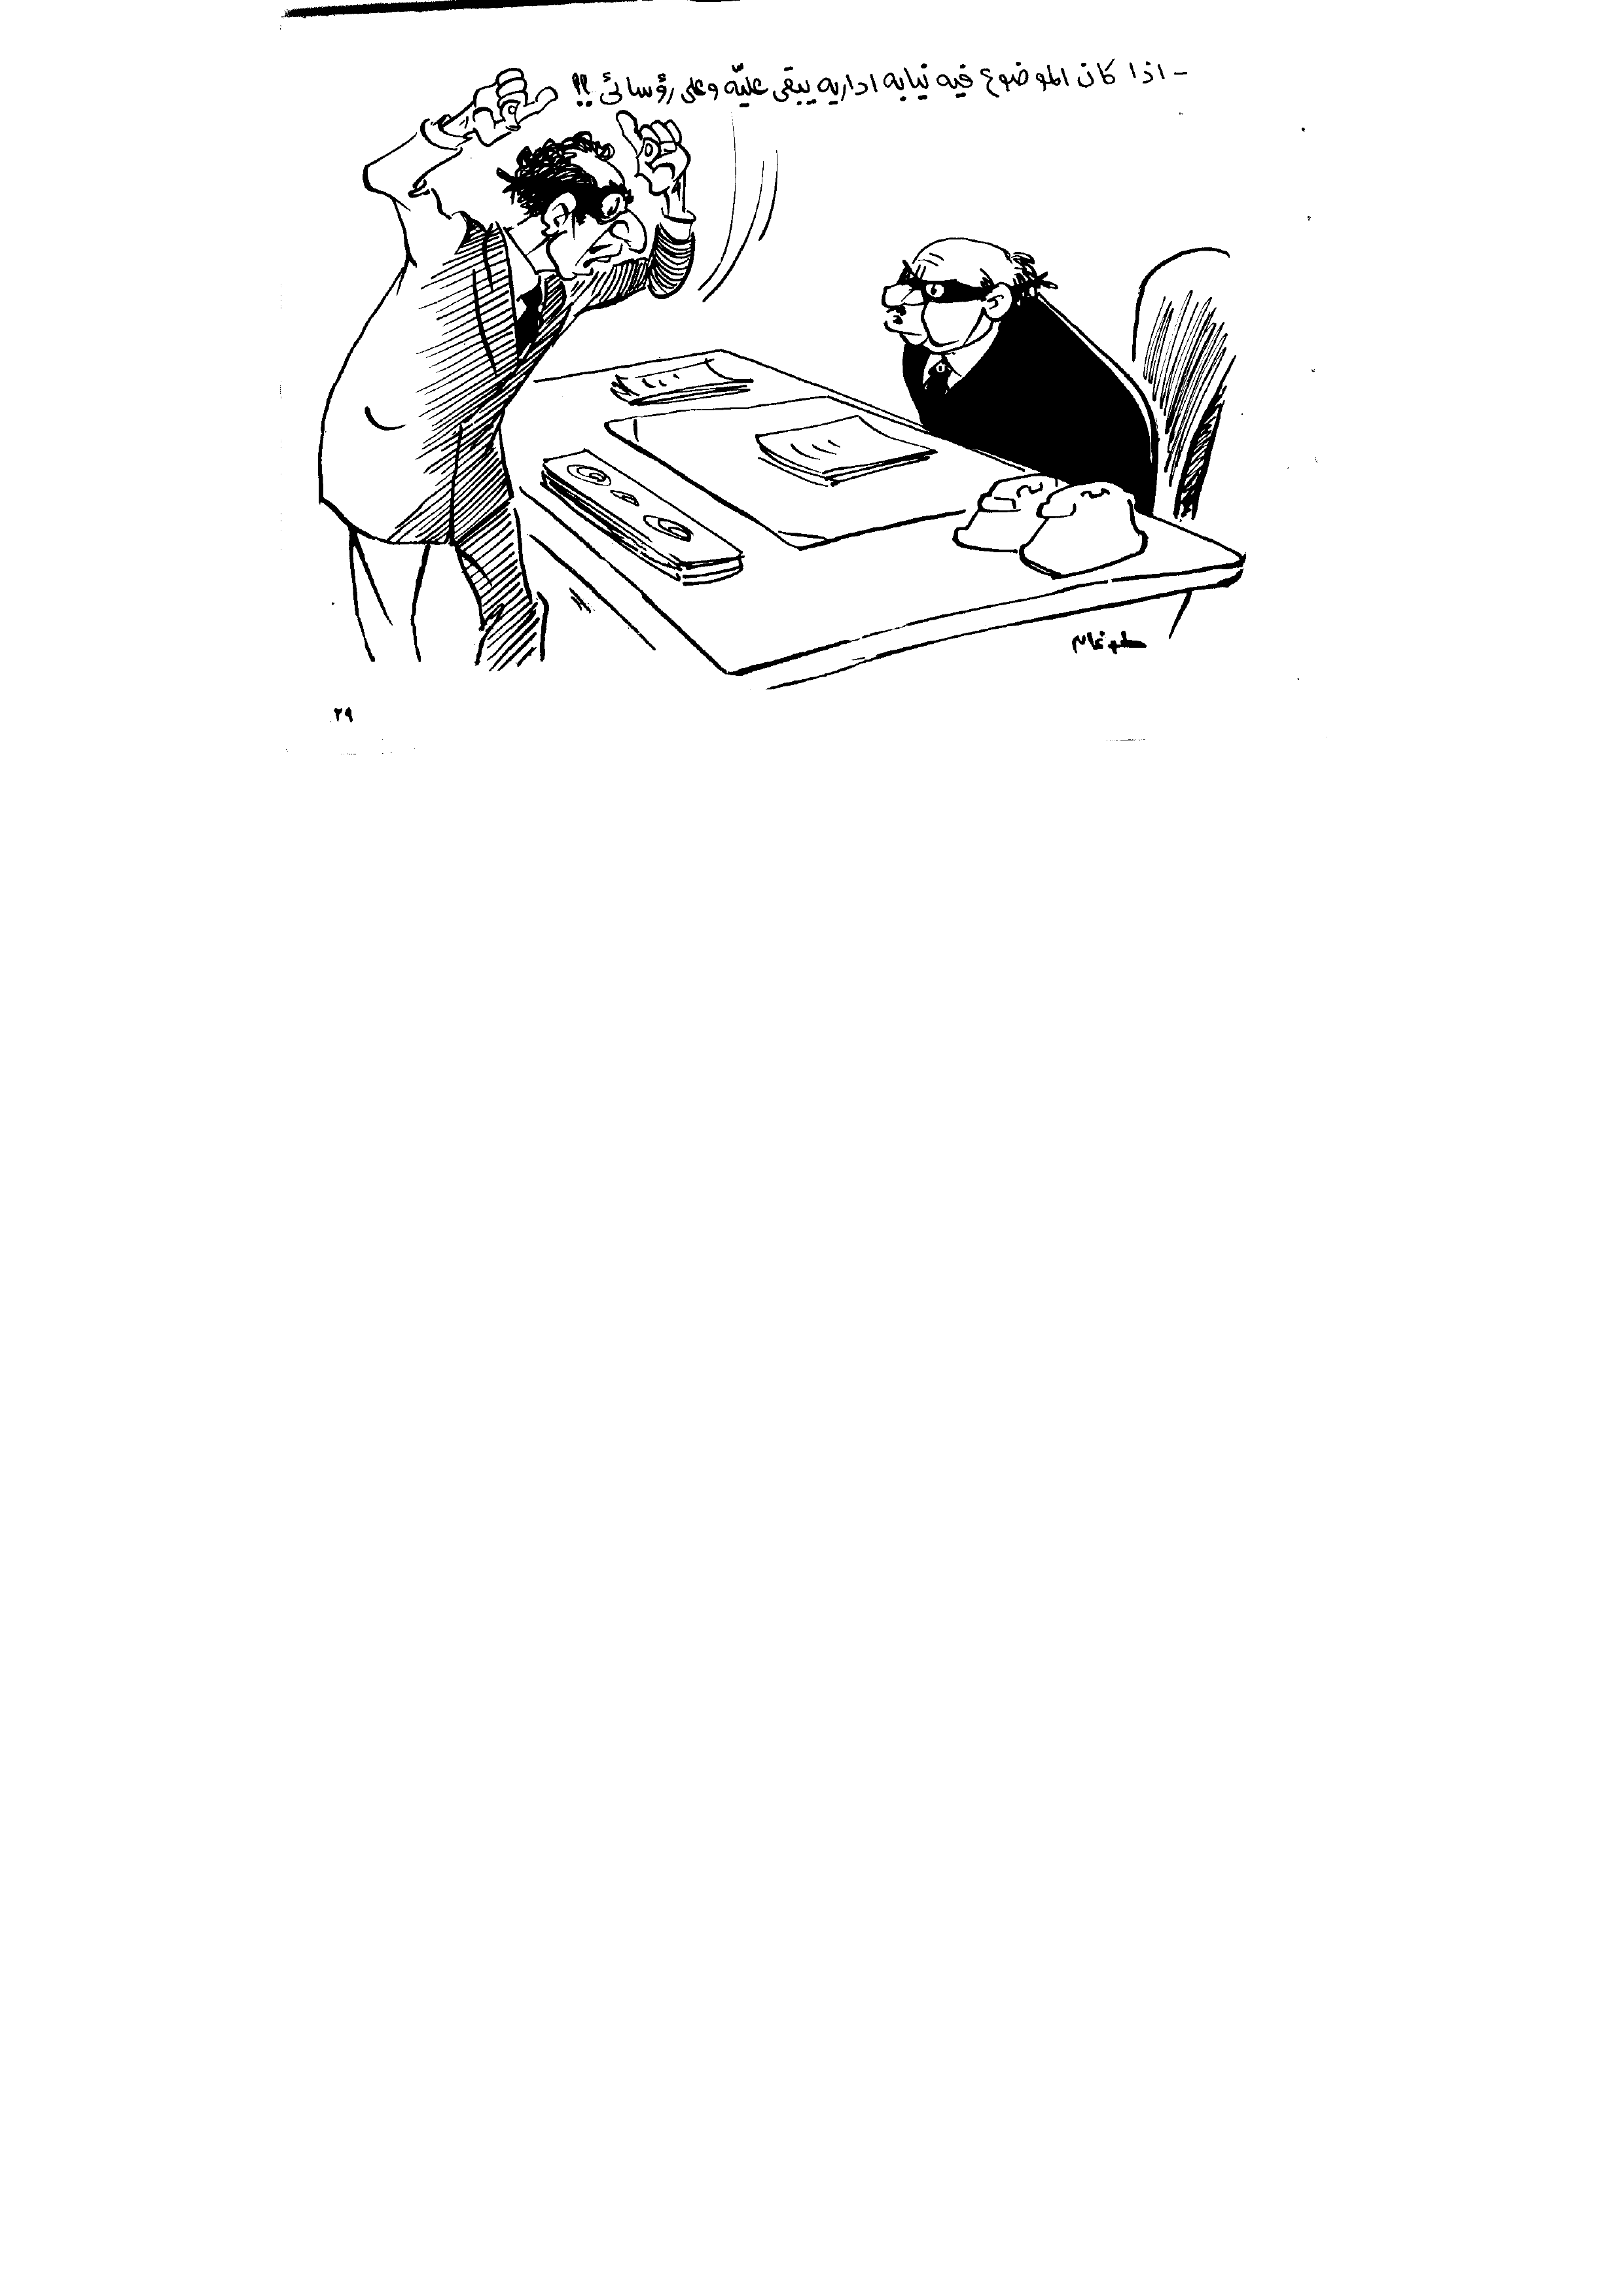 - اذا كان الموضوع فيه نيابه اداريه يبقى عليّه وعلى رؤسائى !!
٢٩